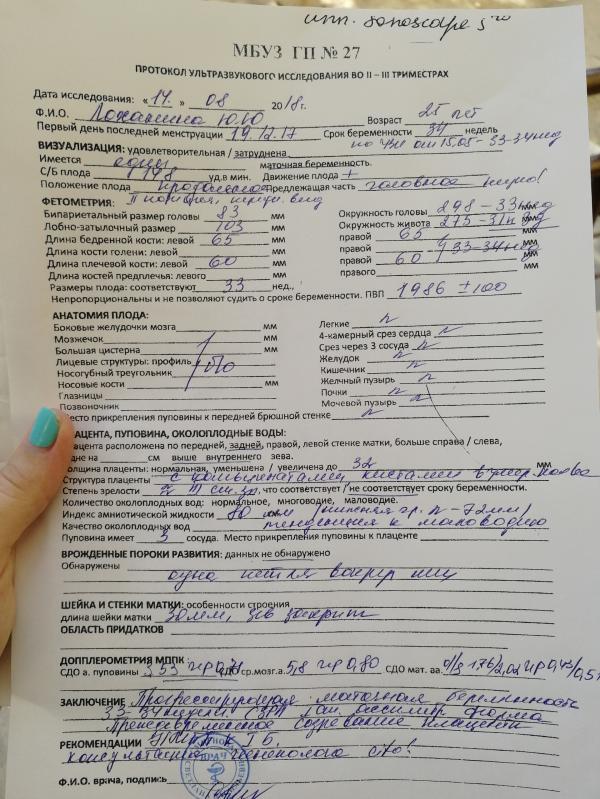 МБУЗ ГП № 27
ПРОТОКОЛ УЛЬТРАЗВУКОВОГО ИССЛЕДОВАНИЯ ВО II – III ТРИМЕСТРАХ
Дата исследования: «14» 08 2018г.
Ф.И.О. Ю.Ю Возраст 25 лет
Первый день последней менструации 19.12.17 Срок беременности 34 недель
по УЗИ от 15.05 - 33-34нед
ВИЗУАЛИЗАЦИЯ: удовлетворительная / затруднена
Имеется один маточная беременность.
С/Б плода 148 уд.в мин. Движение плода +
Положение плода продольное Предлежащая часть головное
ФЕТОМЕТРИЯ: II позиция,
Бипариетальный размер головы 83 мм Окружность головы 298 - 33нед
Лобно-затылочный размер 103 мм Окружность живота 275 - 31нед мм
Длина бедренной кости: левой 65 правой 65 мм
Длина кости голени: левой правой 33-34нед мм
Длина плечевой кости: левой 60 правой 60 мм
Длина костей предплечья: левого правого мм
Размеры плода: соответствуют 33 нед.,
Непропорциональны и не позволяют судить о сроке беременности. ПВП 1986 ±100
АНАТОМИЯ ПЛОДА:
Боковые желудочки мозга мм Легкие n
Мозжечок мм 4-камерный срез сердца n
Большая цистерна мм Срез через 3 сосуда n
Лицевые структуры: профиль Желудок n
Носогубный треугольник Кишечник n
Носовые кости мм Желчный пузырь n
Глазницы Почки n
Позвоночник Мочевой пузырь n
Место прикрепления пуповины к передней брюшной стенке n
ПЛАЦЕНТА, ПУПОВИНА, ОКОЛОПЛОДНЫЕ ВОДЫ:
Плацента расположена по передней, задней, правой, левой стенке матки, больше справа / слева,
дне на см выше внутреннего зева.
Толщина плаценты: нормальная, уменьшена / увеличена до 32 мм
Структура плаценты с кистами
Степень зрелости что соответствует / не соответствует сроку беременности.
Количество околоплодных вод: нормальное, многоводие, маловодие.
Индекс амниотической жидкости 80 мм /нижняя гр. n - 72мм/
Качество околоплодных вод тенденция к маловодию
Пуповина имеет 3 сосуда. Место прикрепления пуповины к плаценте
ВРОЖДЕННЫЕ ПОРОКИ РАЗВИТИЯ: данных не обнаружено
Обнаружены
одна петля вокруг шеи
ШЕЙКА И СТЕНКИ МАТКИ: особенности строения
длина шейки матки 30мм, зев закрыт
ОБЛАСТЬ ПРИДАТКОВ
ДОППЛЕРОМЕТРИЯ МППК
СДО а. пуповины 3,53 СДО ср.мозг.а. 5,8 ир 0,80 СДО мат. аа.
ЗАКЛЮЧЕНИЕ Прогрессирующая маточная беременность
33-34недели.
Преждевременное созревание плаценты
РЕКОМЕНДАЦИИ
консультация гинеколога
Ф.И.О. врача, подпись